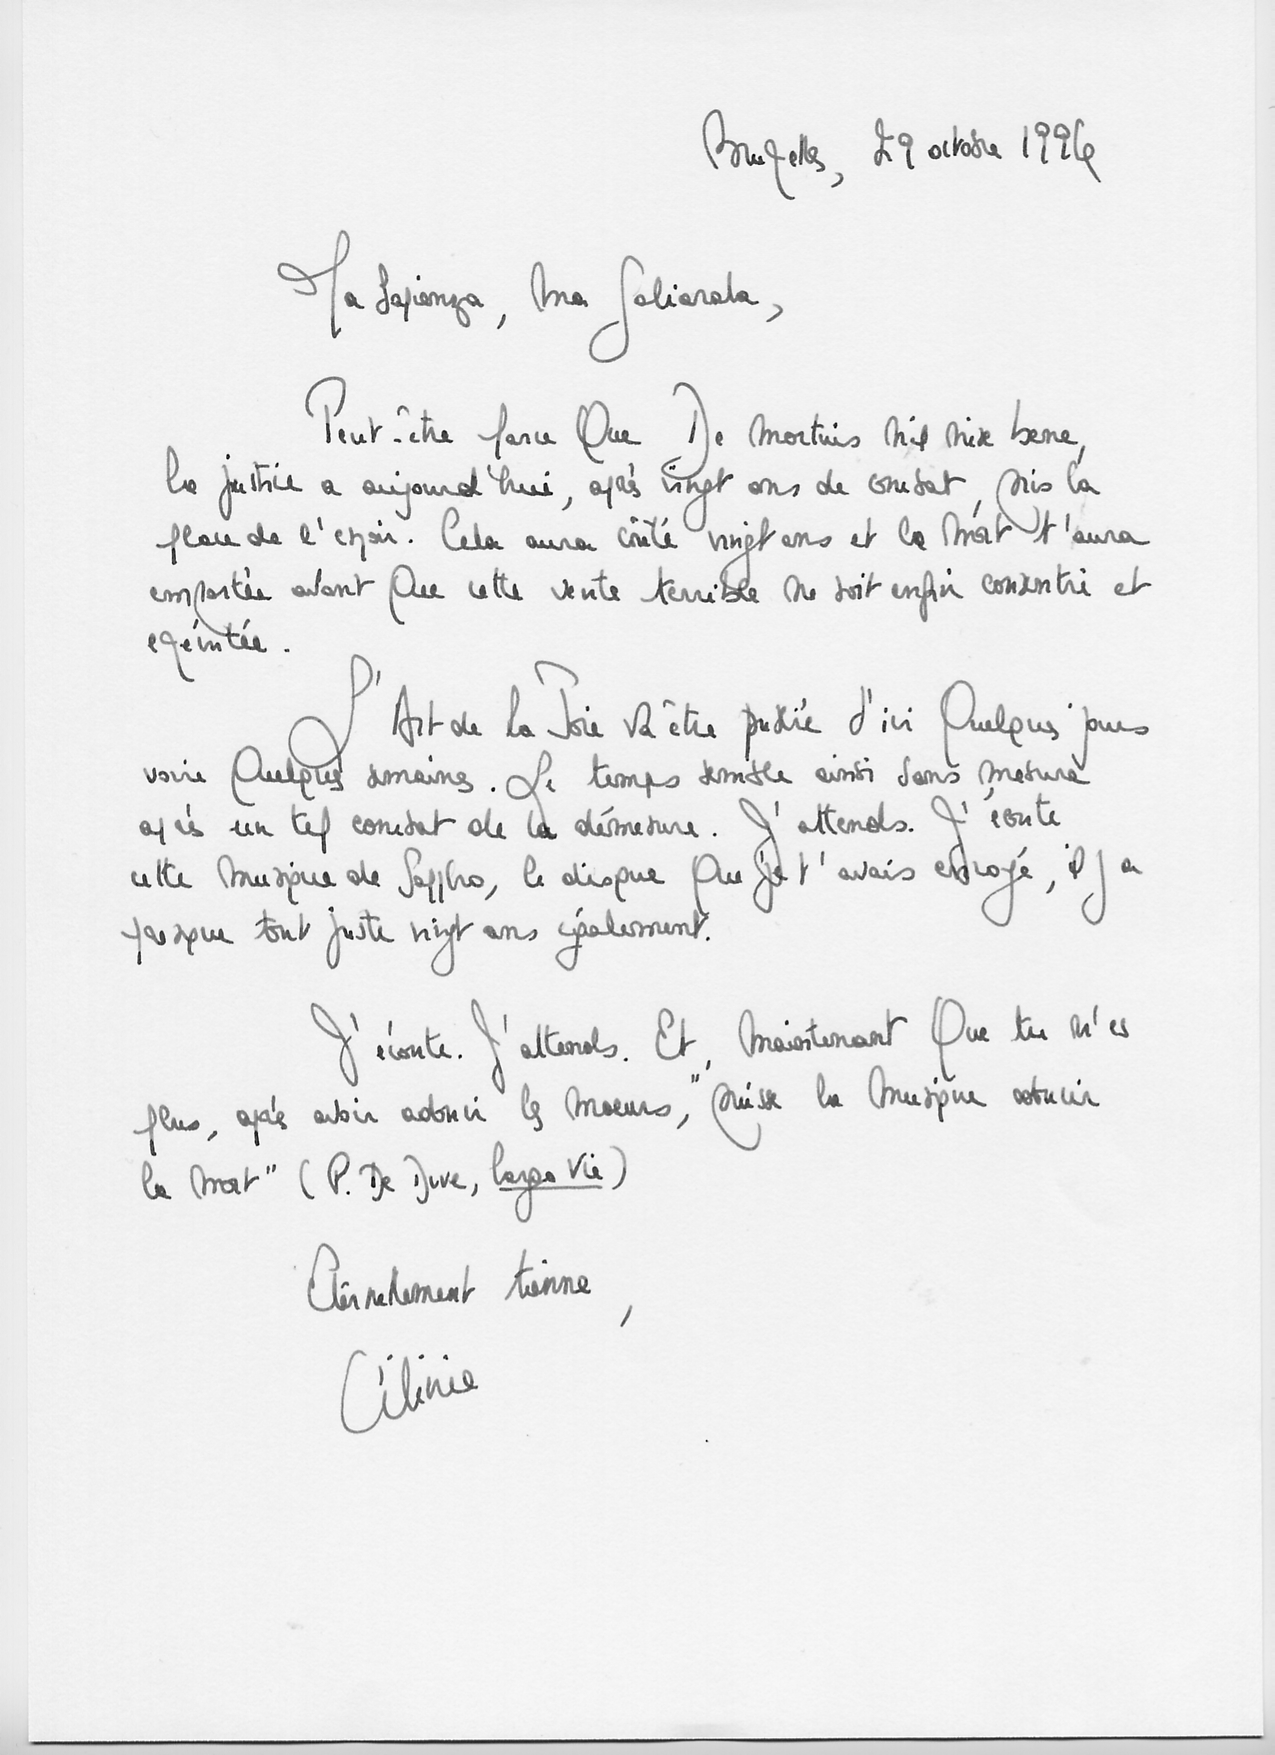 Bruxelles, 29 octobre 1996
Ma Sapienza, ma Goliarda,
Peut-être parce que De mortuis nil nisi bene,
la justice a aujourd'hui, après vingt ans de combat, pris la
place de l'espoir. Cela aura coûté vingt ans et la mort t'aura
emportée avant que cette vente terrible ne soit enfin consentie et
exécutée.
L'Art de la Joie va être publié d'ici quelques jours
voire quelques semaines. Le temps semble ainsi sans mesure
après un tel combat de la démesure. J'attends. J'écoute
cette musique de Sappho, le disque que je t'avais envoyé, il y a
presque tout juste vingt ans également.
J'écoute. J'attends. Et, maintenant que tu n'es
plus, après avoir adouci les moeurs, "puisse la musique adoucir
la mort" (P. De Duve, largo Vie)
Éternellement tienne,